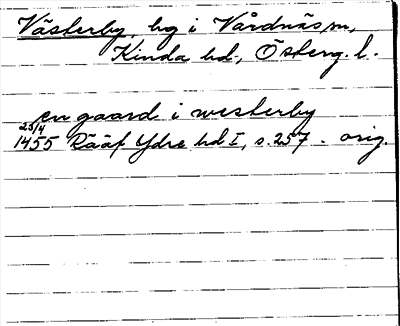 Västerby, hg i Vårdnäs sn,
Kinda hd., Österg. l.
en gaard i westerby
23/4
1455 Rääf Ydre hd I, s. 257. orig.